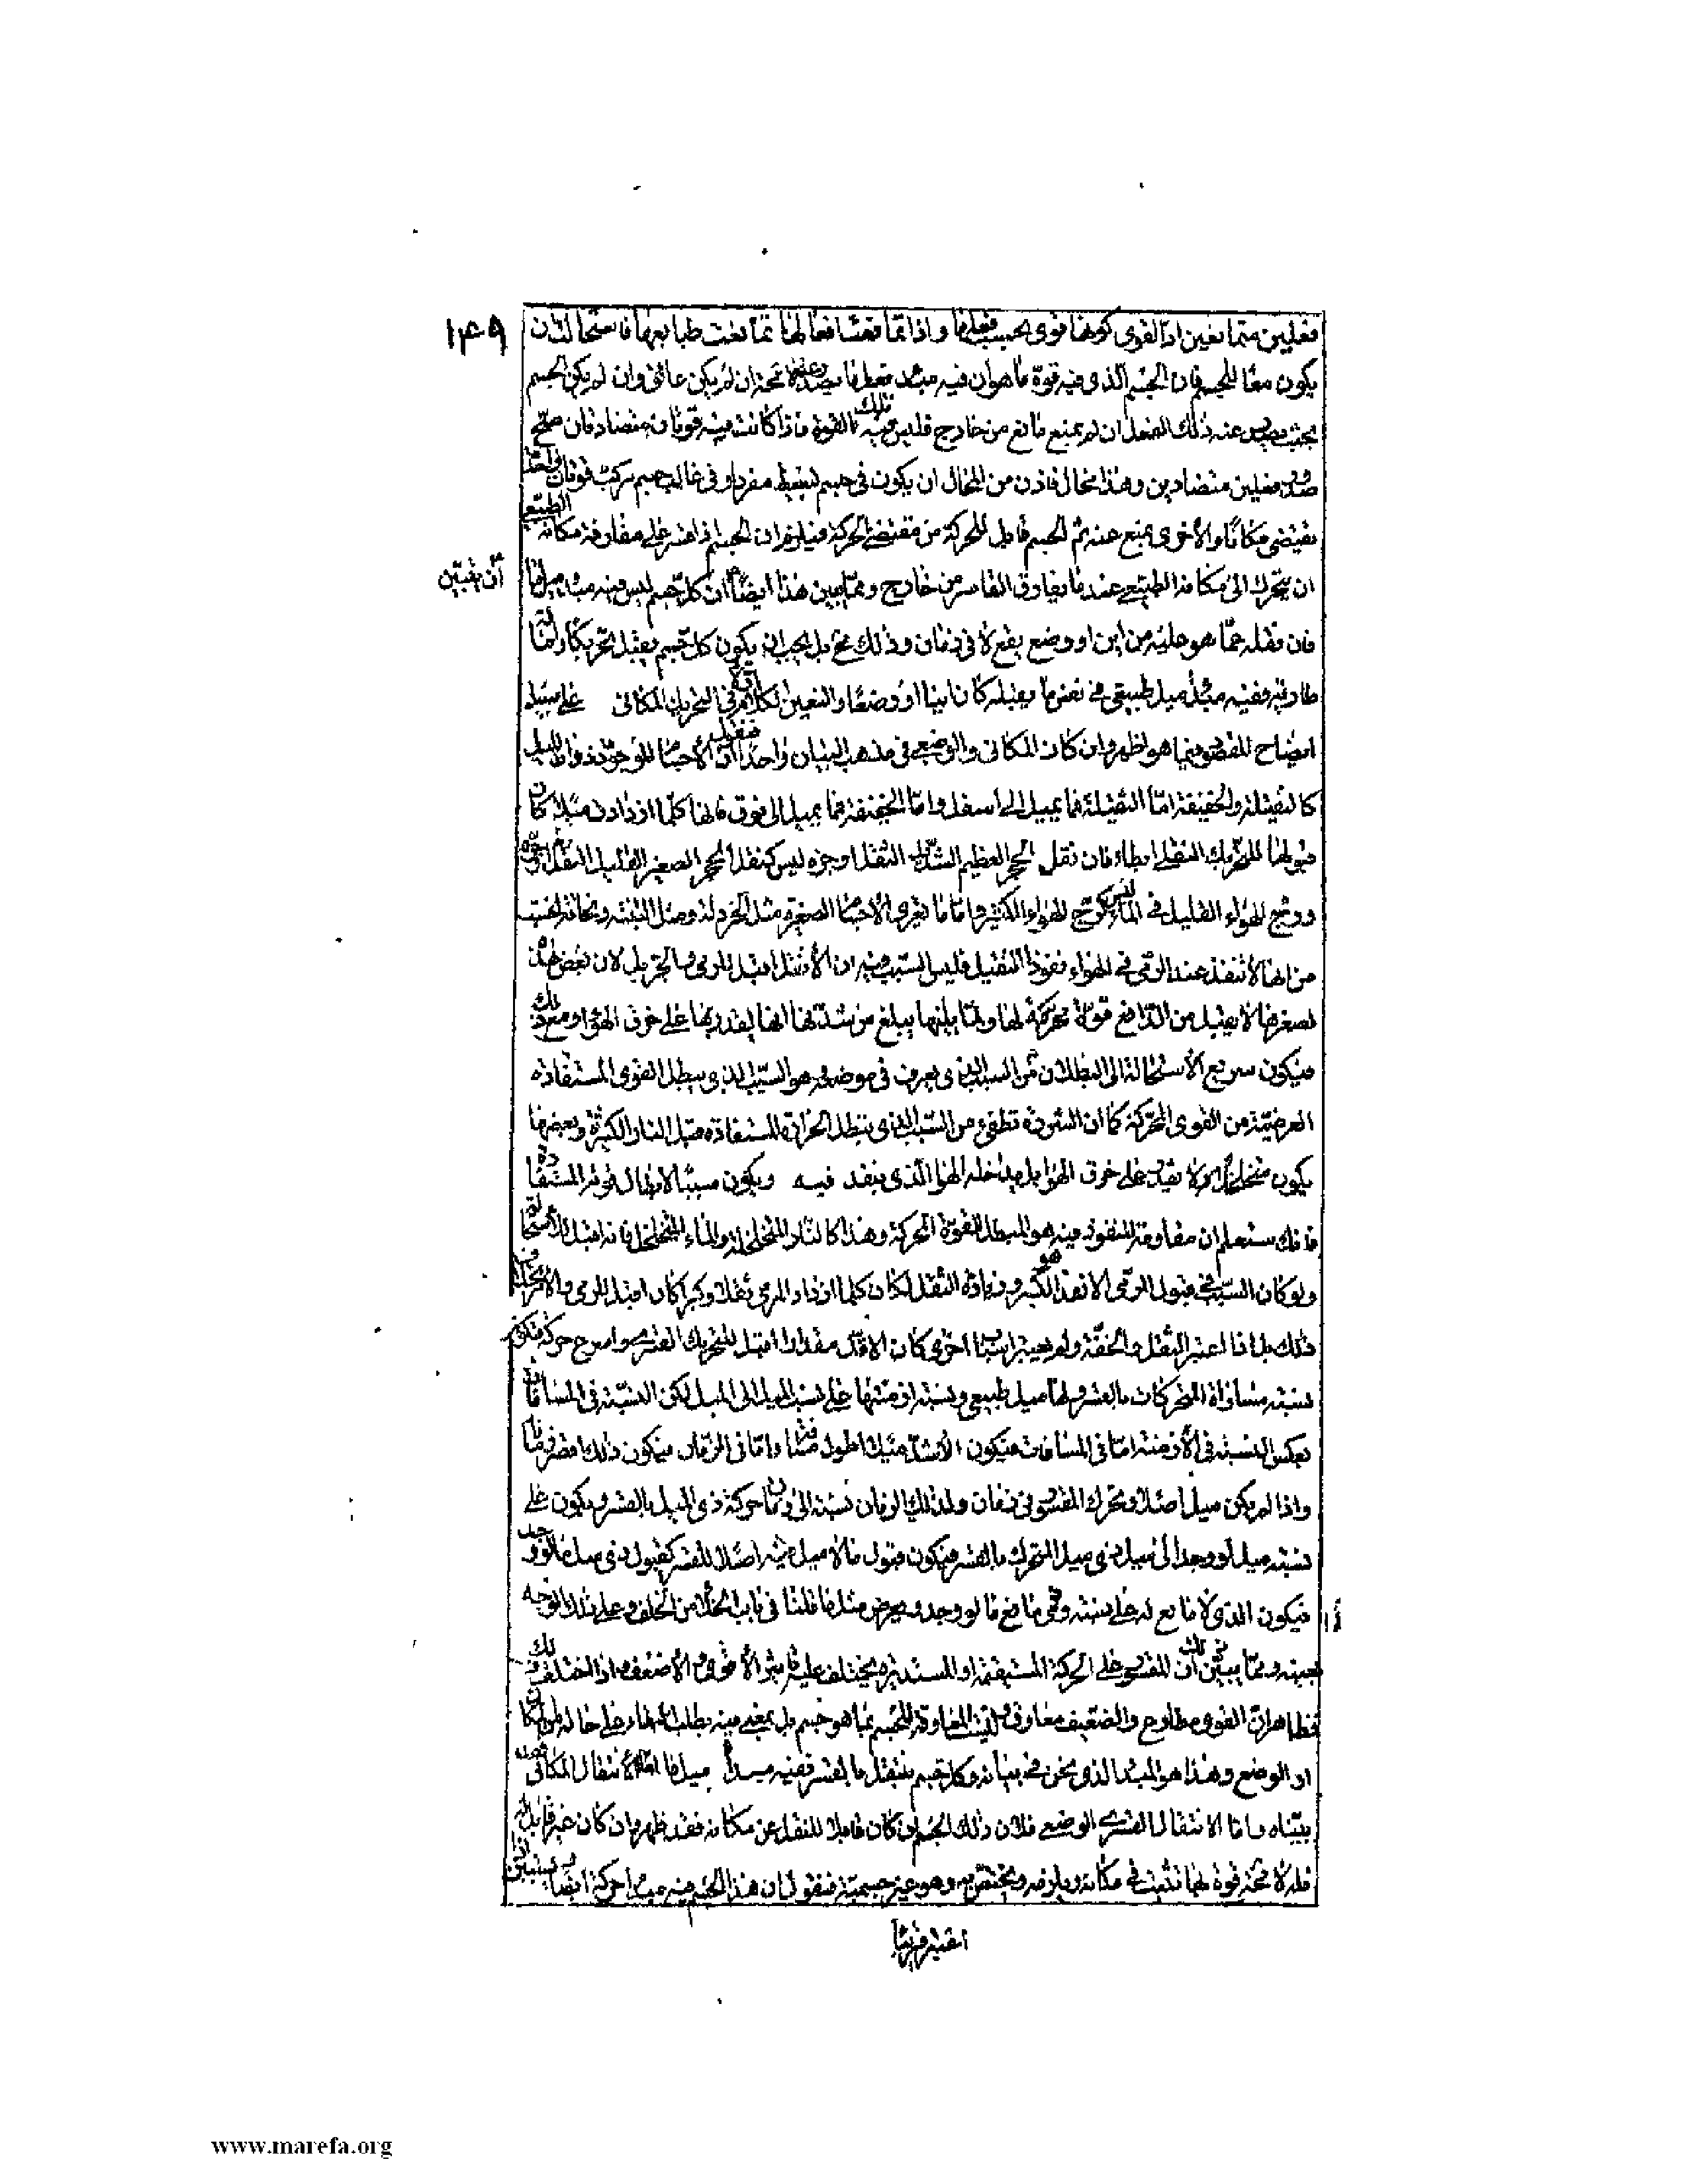 ١٤٩
فعلين متمانعين اذ القوى كونها قوى بحسب فعلها و اذا تمانعت افعالها تمانعت طبايعها فاستحال ان
يكون معا للجسم فان الجسم الذى فيه قوة ما هو ان فيه مبدء فعل ما يصدر عنها ان لم يكن عائق وان لم يكن الجسم
بحيث يصدر عنه ذلك الفعل ان لم يمنع مانع من خارج فليس فيه تلك القوة فاذا كانت فيه قوتان متضادتان صح
صدور فعلين متضادين وهذا محال فاذن من المحال ان يكون فى جسم بسيط مفرد او فى غالب جسم مركب قوتان واحدة
تقتضى مكانا والأخرى تمنع عنه ثم الجسم قابل للحركة من مقتضى الحركة فيلزم ان الجسم اذا قسر على مفارقة مكانه الطبيعى
ان يتحرك الى مكانه الطبيعى عندما يفارق القاسر من خارج ومما يبين هذا ايضا ان كل جسم ليس فيه مبدء ميل ما
أن يتبين
فان نقله عما هو عليه من اين او وضع يقع لا فى زمان وذلك مح بل يجب ان يكون كل جسم يقبل تحريكا وامالة
طارية ففيه مبدأ ميل طبيعى فى نفس ما يقبله كان اينا او وضعا ولنعين الكلام فى التحريك المكانى على سبيل
ايضاح للمقصود بما هو اظهر وان كان المكانى والوضعى فى مذهب البيان واحدا فنقول ان الأجسام الموجودة ذوات الميل
كالثقيلة والخفيفة اما الثقيلة فما يميل الى اسفل واما الخفيفة فما يميل الى فوق فانها كلما ازدادت ميلا كان
قبولها للتحريك النقلى ابطاء فان نقل الحجر العظيم الشديد الثقل او جره ليس كنقل الحجر الصغير القليل الثقل او جره
وزج الهواء القليل فى الماء ليس كزج الهواء الكثير واما ما يعرى الأجسام الصغيرة مثل الخردلة ومثل التبنة ونحاتة الخشب
من انها لا تنفذ عند الرمى فى الهواء نفوذ الثقيل فليس السبب فيه ان الأثقل اقبل للرمى والجر بل لان بعض هذه
لصغرها لا يقبل من الدافع قوة محركة لها ولما يليها يبلغ من شدتها انها يقدر بها على خرق الهواء ومع ذلك
فيكون سريع الأستحالة الى البطلان من السبب الذى يعرف فى موضعه وهو السبب الذى يبطل القوى المستفادة
العرضية من القوى المحركة كما ان الشررة تطفئ من السبب الذى يبطل الحرارة المستفادة قبل النار الكبيرة وبعضها
يكون متخلخلا لا يقدر على خرق الهواء بل يداخله الهواء الذى ينفذ فيه ويكون سببا لابطال قوته المستفادة
فانك ستعلم ان مقاومة المنفوذ فيه هو المبطل للقوة المحركة وهذا كالنار المتخلخلة والماء المتخلخل فانه اقبل للاستحالة
ولو كان السبب فى قبول الرمى الانفذ هو الكبر وزيادة الثقل لكان كلما ازداد المرمى ثقلا وكبرا كان اقبل للرمى والأمر بخلاف
ذلك بل اذا اعتبر الثقل والخفة ولم يعتبر اسباب اخرى كان الاقل مقدارا اقبل للتحريك القسرى واسرع حركة فتكون
نسبة مسافات المتحركات بالقسر ولها ميل طبيعى ونسبة ازمنتها على نسبة الميل الى الميل لكن النسبة فى المسافات
بعكس النسبة فى الأزمنة اما فى المسافات فيكون الأشد ميلا اطول مسافة واما فى الزمان فيكون ذلك اقصر زمانا
واذا لم يكن ميل اصلا وتحرك المقسور فى زمان ولذلك الزمان نسبة الى زمان حركة ذى الميل بالقسر ويكون على
نسبة ميل لو وجد الى ميل ذى ميل المتحرك بالقسر فيكون قبول ما لا ميل فيه اصلا للقسر كقبول ذى ميل ما لو وجد
فيكون الذى لا مانع له على نسبة ذى مانع ما لو وجد ويعرض مثل ما قلنا فى باب الخلاء من الخلف وعلى ذلك الوجه
بعينه ومما يبين ذلك ان المقسور على الحركة المستقيمة او المستديرة يختلف عليه تاثير الأقوى والأضعف واذا اختلف ذلك
فظاهر ان القوى مطاوع والضعيف معاوق وليس المعاوقة للجسم بما هو جسم بل بمعنى فيه يطلب البقاء على حاله من المكان
او الوضع وهذا هو المبدء الذى نحن فى بيانه وكل جسم ينتقل بالقسر ففيه مبدأ ميل ما اما الأنتقال المكانى فقد
بيناه واما الانتقال القسرى الوضعى فلان ذلك الجسم ان كان قابلا للنقل عن مكانه فقد ظهر وان كان غير قابل له
فله لا محة قوة بها تثبت فى مكانه ويلزمه ويختص به وهو غير جسميته فنقول ان هذا الجسم فيه مبدأ حركة ايضا
www.marefa.org